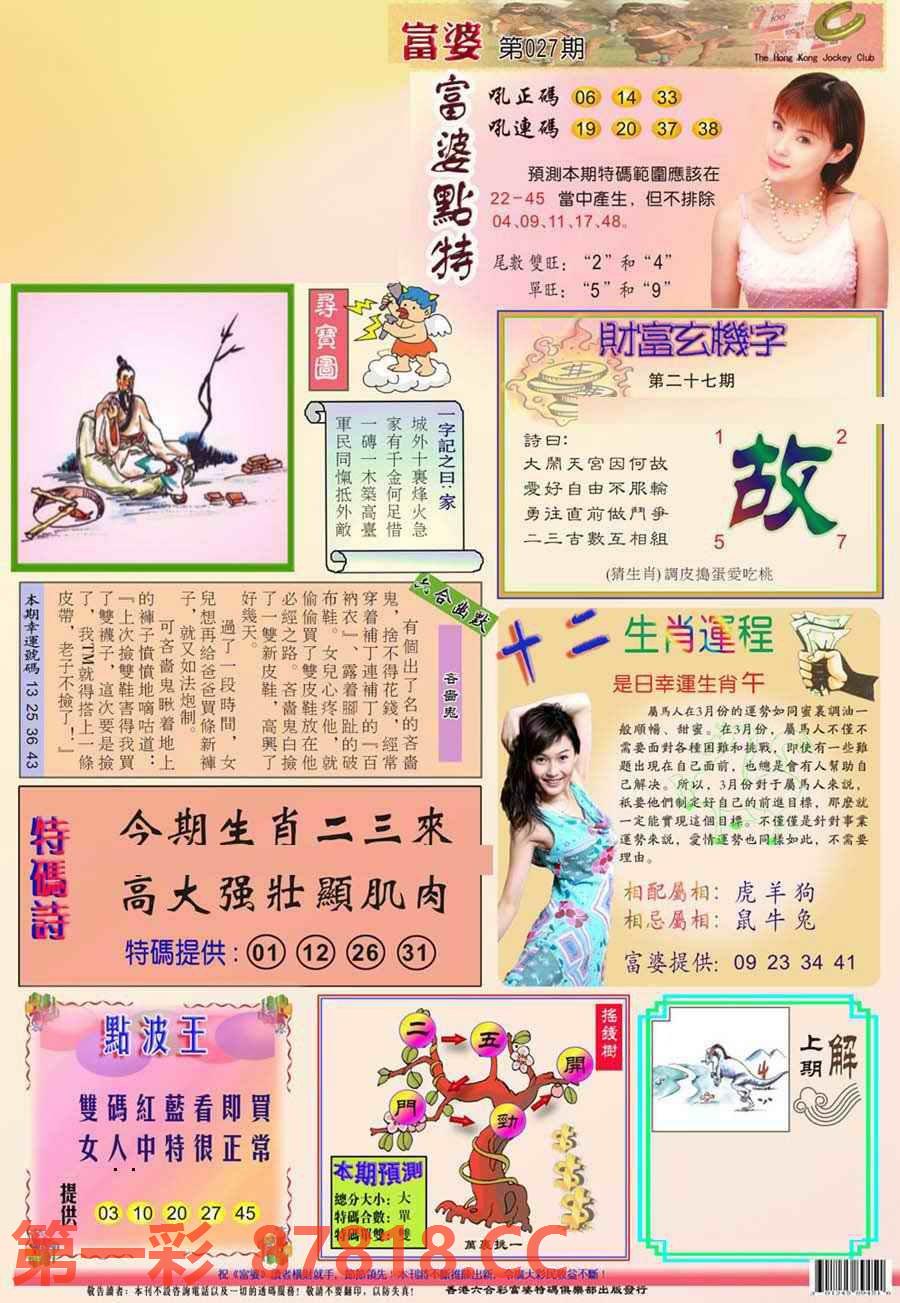 富婆 第027期
The Hong Kong Jockey Club
富婆點特
吼正碼 06 14 33
吼連碼 19 20 37 38
預測本期特碼範圍應該在
22-45 當中產生，但不排除
04、09、11、17、48。
尾數雙旺：“2”和“4”
單旺：“5”和“9”
尋寶圖
一字記之曰：家
城外十裏烽火急
家有千金何足惜
一磚一木築高臺
軍民同愾抵外敵
財富玄機字
第二十七期
詩曰：
大鬧天宮因何故
愛好自由不服輸
勇往直前做鬥爭
二三吉數互相組
1 2
故
5 7
(猜生肖)調皮搗蛋愛吃桃
六合幽默
吝嗇鬼
有個出了名的吝嗇
鬼，捨不得花錢，經常
穿着補丁連補丁的『百
衲衣』、露着腳趾的破
布鞋。女兒心疼他，就
偷偷買了雙皮鞋放在他
必經之路。吝嗇鬼白撿
了一雙新皮鞋，高興了
好幾天。
過了一段時間，女
兒想再給爸爸買條新褲
子，就又如法炮制。
可吝嗇鬼瞅着地上
的褲子憤憤地嘀咕道：
『上次撿雙鞋害得我買
了雙襪子，這次要是撿
了，我TM就得搭上一條
皮帶，老子不撿了！』
本期幸運號碼 13 25 36 43
十二生肖運程
是日幸運生肖午
屬馬人在3月份的運勢如同蜜裏調油一
般順暢、甜蜜。在3月份，屬馬人不僅不
需要面對各種困難和挑戰，即使有一些難
題出現在自己面前，也總是會有人幫助自
己解决。所以，3月份對于屬馬人来說，
祇要他們制定好自己的前進目標，那麽就
一定能實現這個目標。不僅僅是針對事業
運勢来說，愛情運勢也同樣如此，不需要
理由。
相配屬相：虎羊狗
相忌屬相：鼠牛兔
富婆提供：09 23 34 41
特碼詩
今期生肖二三來
高大强壯顯肌肉
特碼提供：01 12 26 31
點波王
雙碼紅藍看即買
女人中特很正常
提供 03 10 20 27 45
搖錢樹
二 五
開
門 勁
本期預測
總分大小：大
特碼合數：單
特碼單雙：雙
萬裏挑一
上期解
第一彩 87818.CC
祝《富婆》讀者橫財就手，節節領先！本刊將不斷推陳出新，令廣大彩民收益不斷！
敬告讀者：本刊不設咨詢電話以及一切的透碼服務！敬請不要翻印，以防失真！
香港六合彩富婆特碼俱樂部出版發行